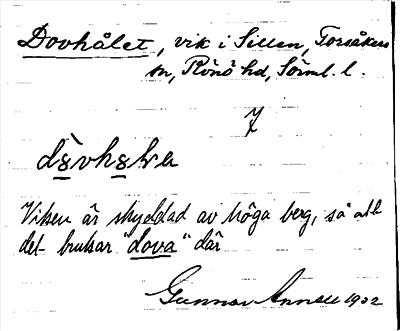 Dovhålet, vik i Sillen, Torsåkers
sn, Rönö hd, Sörml. l.
dòvhəlɐ
Viken är skyddad av höga berg, så att
det brukar "dova" där
Gunnar Annell 1902